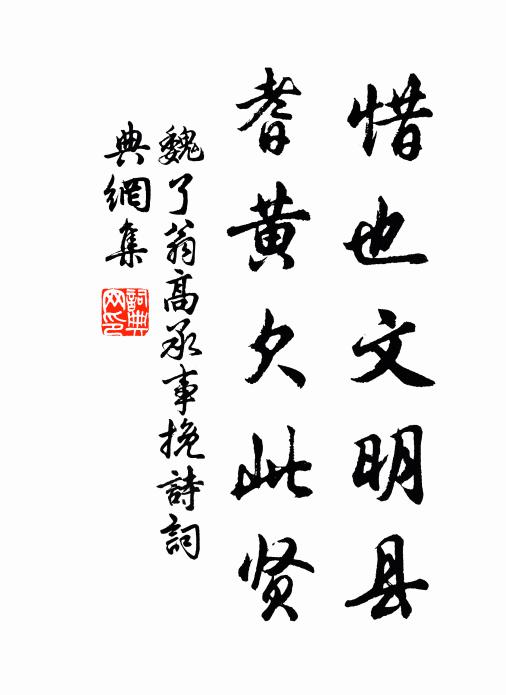 惜也文明县
耆黄欠此贤
魏了翁高承事挽詩詞
典網集
詞典网印